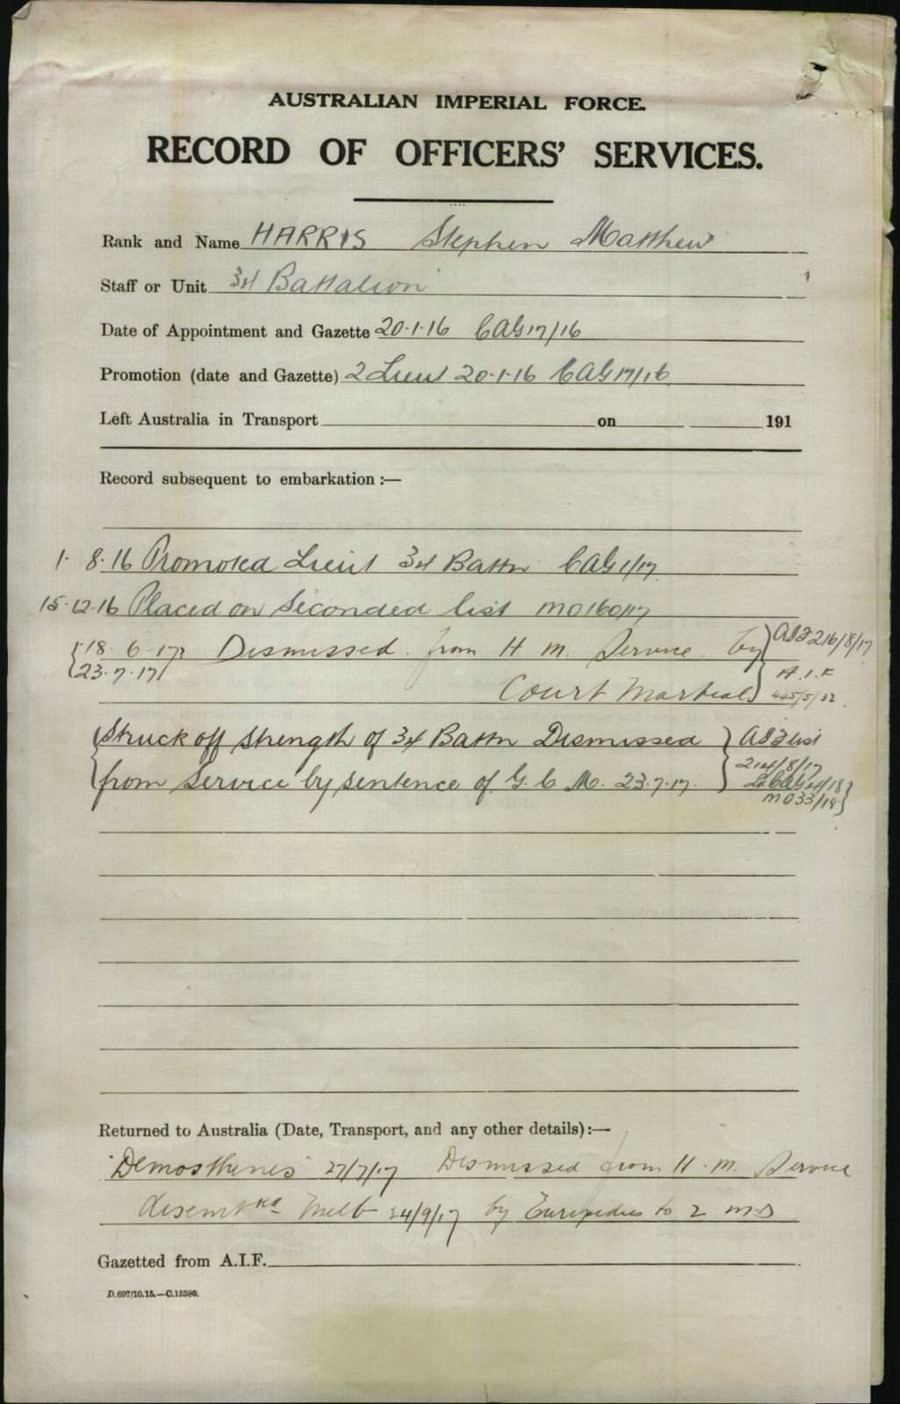 AUSTRALIAN IMPERIAL FORCE.
RECORD OF OFFICERS' SERVICES.
Rank and Name HARRIS Stephen Matthew
Staff or Unit 34 Battalion
Date of Appointment and Gazette 20.1.16 CAG 17/16
Promotion (date and Gazette) 2 Lieut 20.1.16 CAG 17/16
Left Australia in Transport on 191
Record subsequent to embarkation :—
1. 8.16 Promoted Lieut 34 Battn CAG 1/17
15.12.16 Placed on Seconded list MO 160/17
18.6.17 Dismissed from H M. Service by 216/8/17
23.7.17 Court Martial A.I.F
Struck off Strength of 34 Battn Dismissed list
from Service by sentence of G. C. M. 23.7.17. 214/8/17
MO 33/18
Returned to Australia (Date, Transport, and any other details):—
"Demosthenes" 27/7/17 Dismissed from H.M. Service
disembked Melb 24/9/17 by Euripides to 2 M.D
Gazetted from A.I.F.
D.697/10.15.—C.15380.